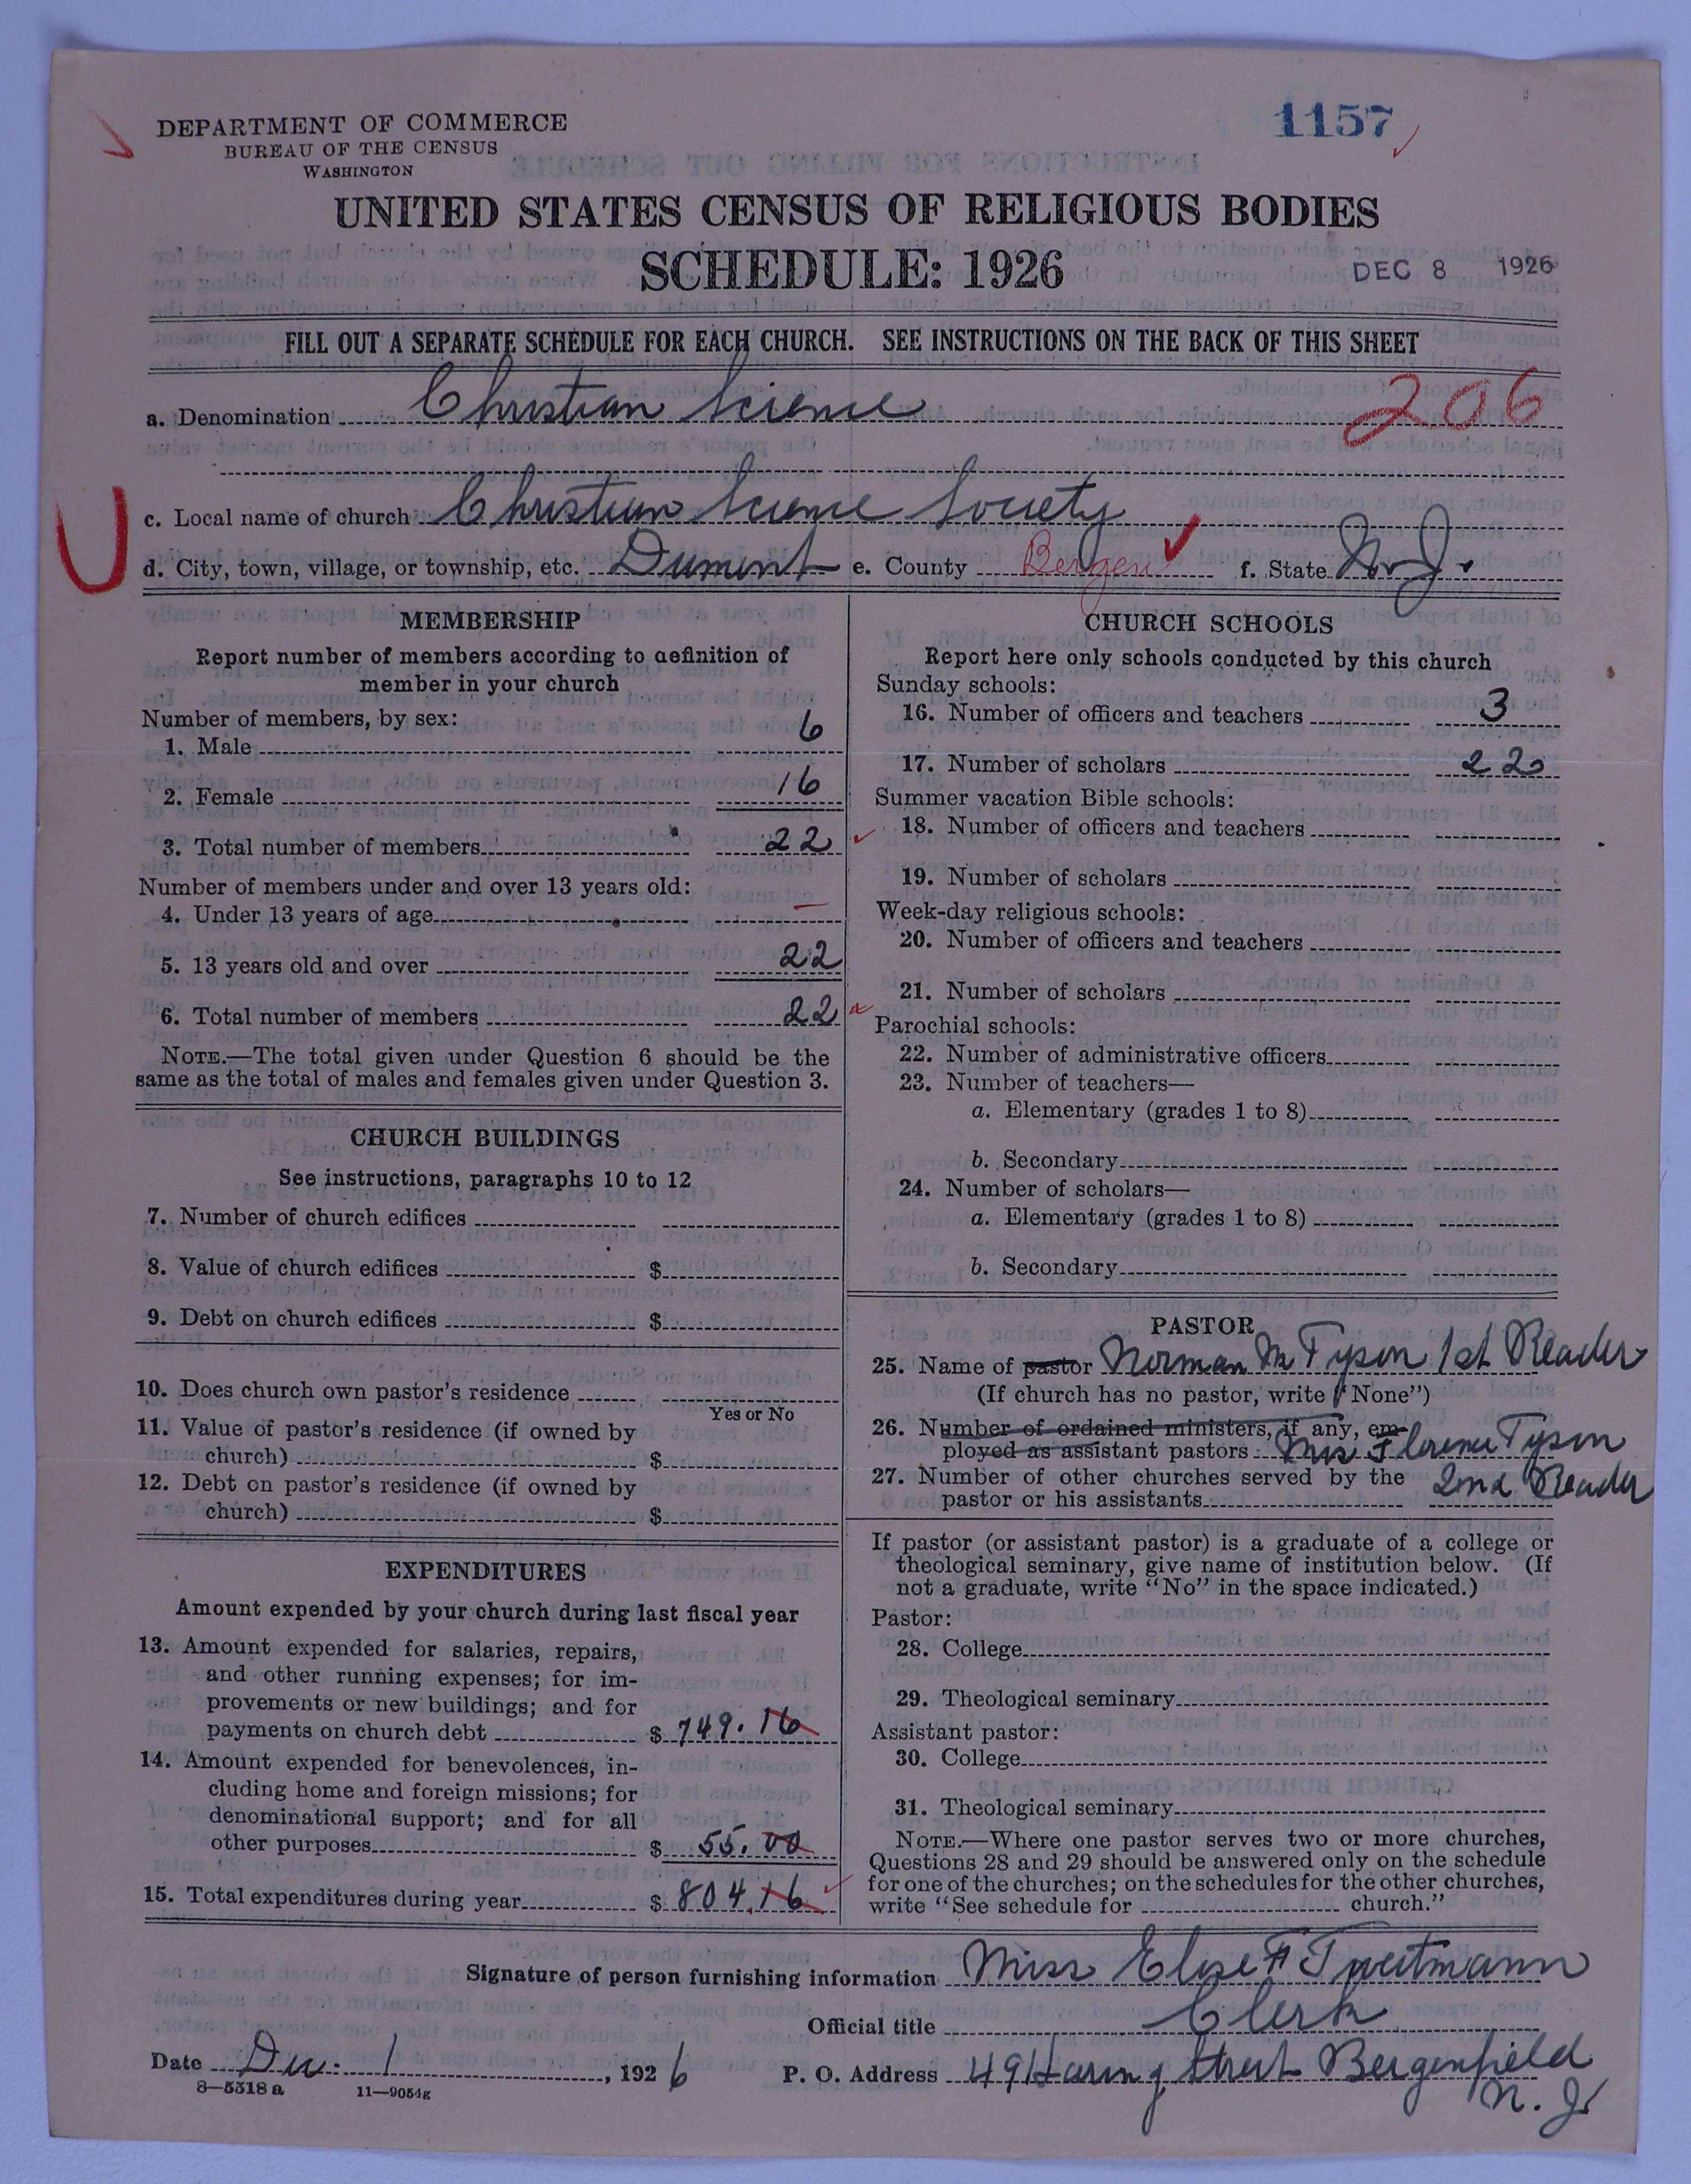 1157
DEPARTMENT OF COMMERCE
BUREAU OF THE CENSUS
WASHINGTON
UNITED STATES CENSUS OF RELIGIOUS BODIES
SCHEDULE: 1926
DEC 8 1926
FILL OUT A SEPARATE SCHEDULE FOR EACH CHURCH. SEE INSTRUCTIONS ON THE BACK OF THIS SHEET
a. Denomination Christian Science
206
c. Local name of church Christian Science Society
U
d. City, town, village, or township, etc. Dumont e. County Bergen f. State N. J.
MEMBERSHIP
Report number of members according to definition of
member in your church
Number of members, by sex:
1. Male 6
2. Female 16
3. Total number of members 22
Number of members under and over 13 years old:
4. Under 13 years of age —
5. 13 years old and over 22
6. Total number of members 22
NOTE.—The total given under Question 6 should be the
same as the total of males and females given under Question 3.
CHURCH BUILDINGS
See instructions, paragraphs 10 to 12
7. Number of church edifices
8. Value of church edifices $
9. Debt on church edifices $
10. Does church own pastor's residence
Yes or No
11. Value of pastor's residence (if owned by
church) $
12. Debt on pastor's residence (if owned by
church) $
EXPENDITURES
Amount expended by your church during last fiscal year
13. Amount expended for salaries, repairs,
and other running expenses; for im-
provements or new buildings; and for
payments on church debt $ 749.16
14. Amount expended for benevolences, in-
cluding home and foreign missions; for
denominational support; and for all
other purposes $ 55.00
15. Total expenditures during year $ 804.16
CHURCH SCHOOLS
Report here only schools conducted by this church
Sunday schools:
16. Number of officers and teachers 3
17. Number of scholars 22
Summer vacation Bible schools:
18. Number of officers and teachers
19. Number of scholars
Week-day religious schools:
20. Number of officers and teachers
21. Number of scholars
Parochial schools:
22. Number of administrative officers
23. Number of teachers—
a. Elementary (grades 1 to 8)
b. Secondary
24. Number of scholars—
a. Elementary (grades 1 to 8)
b. Secondary
PASTOR
25. Name of pastor Norman M Tyson 1st Reader
(If church has no pastor, write "None")
26. Number of ordained ministers, if any, em-
ployed as assistant pastors Mrs Florence Tyson
27. Number of other churches served by the 2nd Reader
pastor or his assistants
If pastor (or assistant pastor) is a graduate of a college or
theological seminary, give name of institution below. (If
not a graduate, write "No" in the space indicated.)
Pastor:
28. College
29. Theological seminary
Assistant pastor:
30. College
31. Theological seminary
NOTE.—Where one pastor serves two or more churches,
Questions 28 and 29 should be answered only on the schedule
for one of the churches; on the schedules for the other churches,
write "See schedule for church."
Signature of person furnishing information Miss Elise F
Official title Clerk
Date Dec. 1, 1926 P. O. Address 49 Haring Street Bergenfield
N. J.
8—5318 a 11—9054g